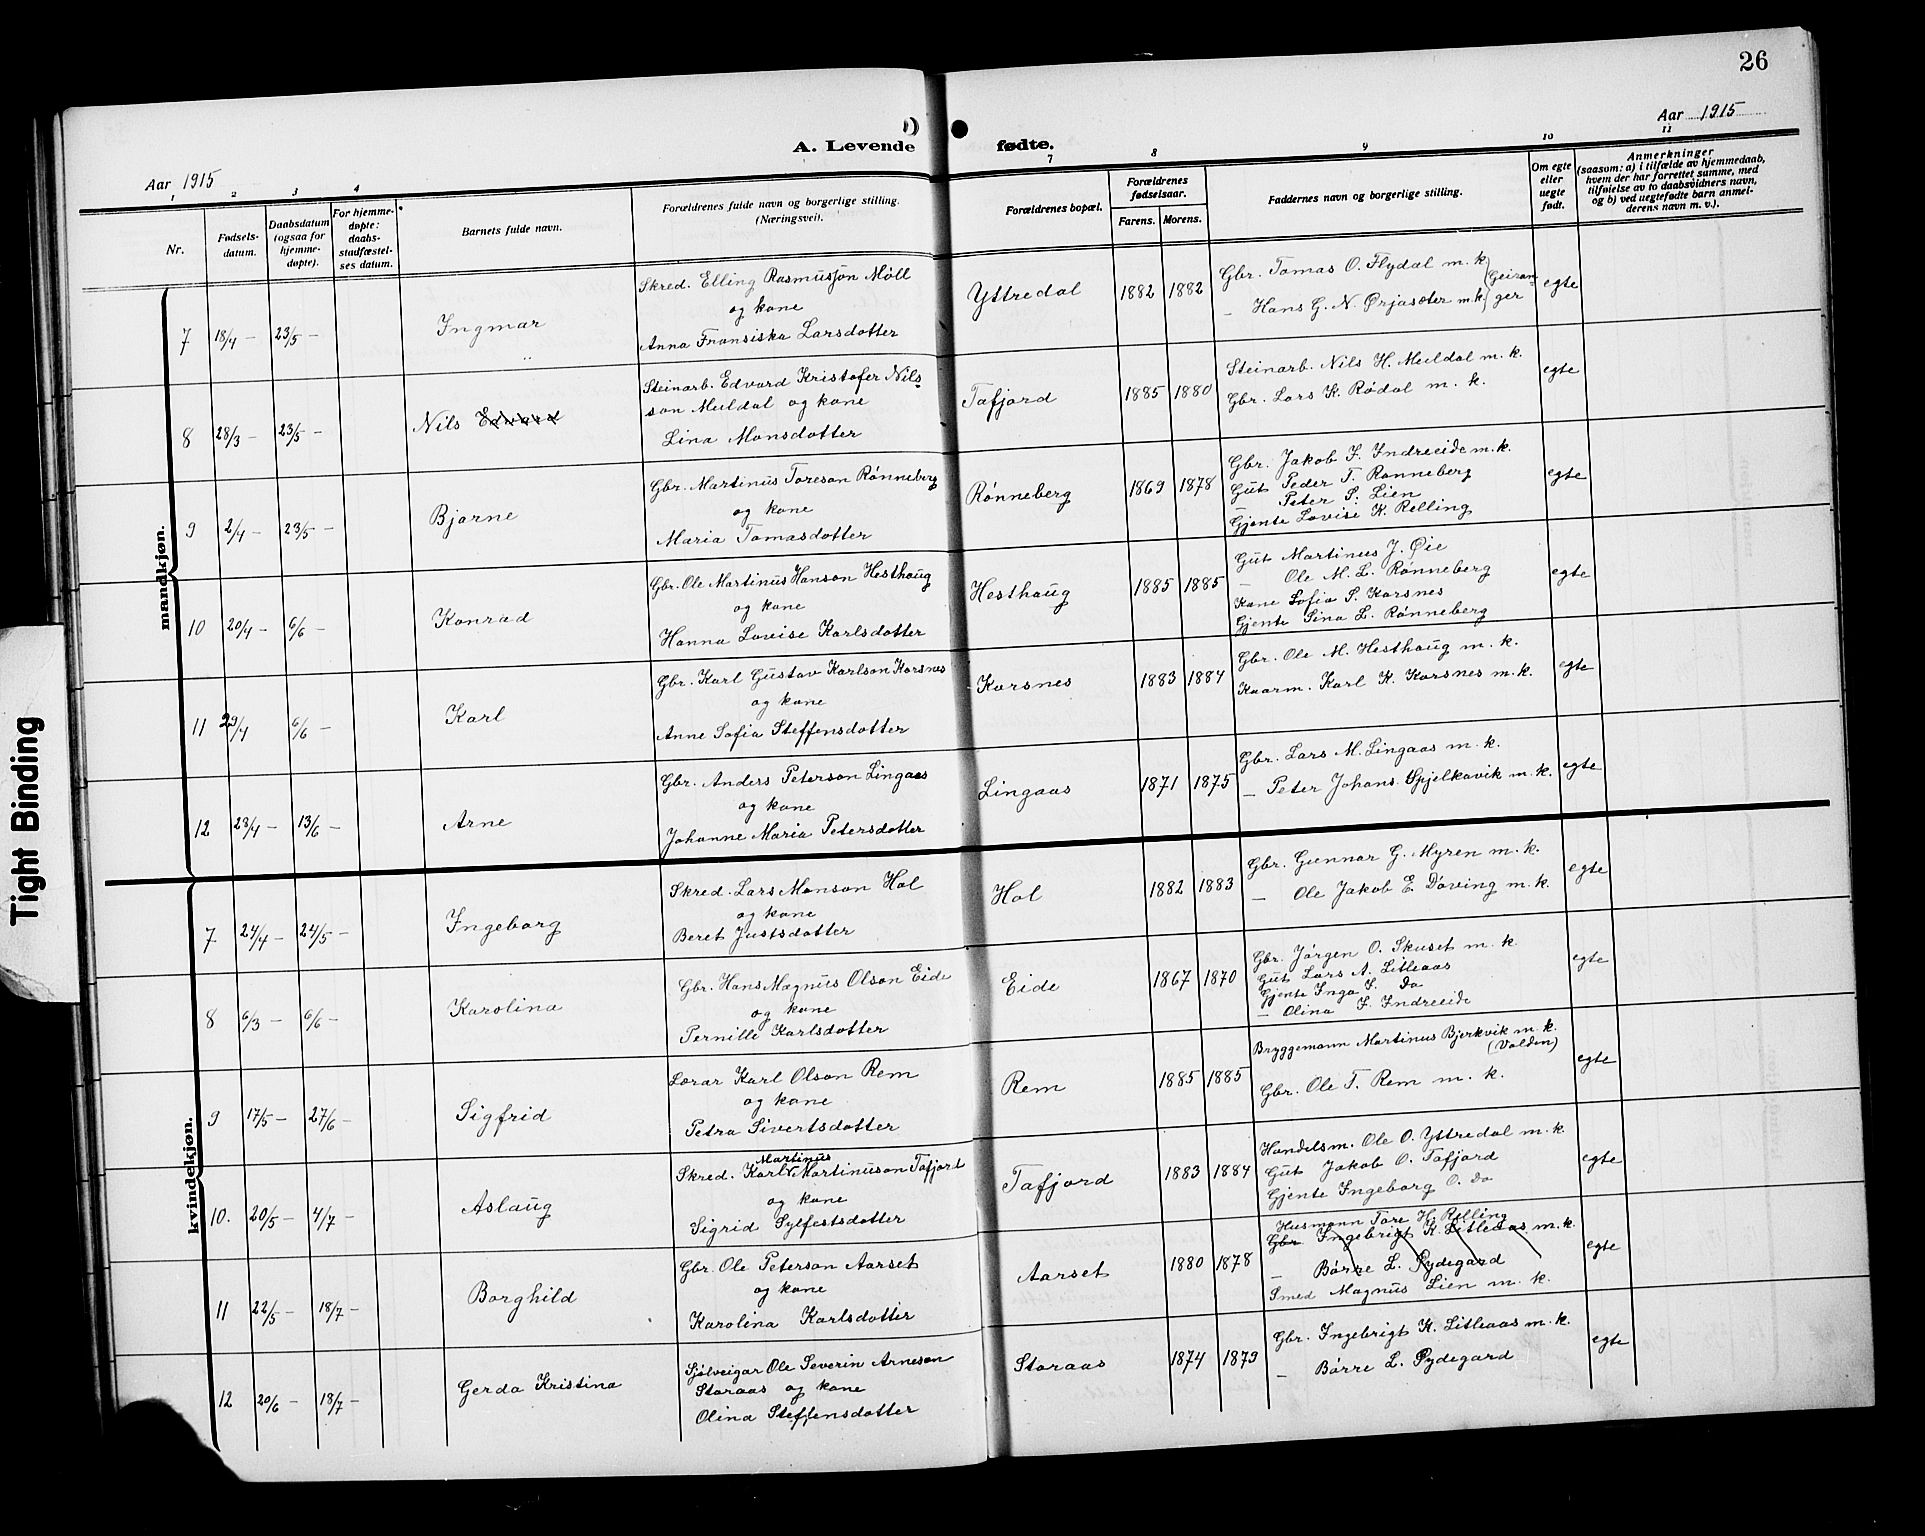 26
Aar 1915
A. Levende fødte.
Aar 1915
1 2 3 4 7 8 9 10 11
Nr.
Fødsels-
datum.
Daabsdatum
(ogsaa for
hjemme-
døpte).
For hjemme-
døpte:
daabs-
stadfæstel-
ses datum.
Barnets fulde navn.
Forældrenes fulde navn og borgerlige stilling.
(Næringsvei).
Forældrenes bopæl.
Forældrenes
fødselsaar.
Farens. Morens.
Faddernes navn og borgerlige stilling.
Om egte
eller
uegte
født.
Anmerkninger
(saasom: a) i tilfælde av hjemmedaab,
hvem der har forrettet samme, med
tilføielse av to daabsvidners navn,
og b) ved uegtefødte barn anmel-
derens navn m. v.).
mandkjøn.
7 18/4 — 23/5 — Ingmar
Skred. Elling Rasmusson Møll
og kone
Anna Fransiska Larsdotter
Yttredal 1882 1882
Gbr. Tomas O. Flydal m. k. (Geiran-
— Hans G. N. Ørjasæter m. k. ger
egte
8 28/3 — 23/5 — Nils Edvard
Steinarb. Edvard Kristofer Nils-
son Muldal og kone
Lina Monsdotter
Tafjord 1885 1880
Steinarb. Nils H. Muldal m. k.
Gbr. Lars K. Rødal m. k.
egte
9 2/4 — 23/5 — Bjarne
Gbr. Martinus Toreson Rønneberg
og kone
Maria Tomasdotter
Rønneberg 1869 1878
Gbr. Jakob I. Indreeide m. k.
Gut Peder T. Rønneberg
— Peter S. Lien
Gjente Lovise K. Relling
egte
10 20/4 — 6/6 — Konrad
Gbr. Ole Martinus Hanson Hesthaug
og kone
Hanna Lovise Karlsdotter
Hesthaug 1885 1885
Gut Martinus J. Øie
— Ole M. L. Rønneberg
Kone Sofia S. Korsnes
Gjente Sina L. Rønneberg
egte
11 29/4 6/6 — Karl
Gbr. Karl Gustav Karlson Korsnes
og kone
Anne Sofia Steffensdotter
Korsnes 1883 1884
Gbr. Ole M. Hesthaug m. k.
Kaarm. Karl K. Korsnes m. k.
egte
12 28/4 — 13/6 — Arne
Gbr. Anders Peterson Lingaas
og kone
Johanne Maria Petersdotter
Lingaas 1871 1875
Gbr. Lars M. Lingaas m. k.
— Peter Johans. Spjelkavik m. k.
egte
kvindekjøn.
7 24/4 — 24/5 — Ingeborg
Skred. Lars Monson Hol
og kone
Beret Justsdotter
Hol 1882 1883
Gbr. Gunnar G. Myren m. k.
— Ole Jakob E. Døving m. k.
egte
8 6/3 — 6/6 — Karolina
Gbr. Hans Magnus Olson Eide
og kone
Pernille Karlsdotter
Eide 1867 1870
Gbr. Jørgen O. Skuset m. k.
Gut Lars A. Litleaas
Gjente Inga I. do
— Olina I. Indreeide
egte
9 17/5 — 27/6 — Sigfrid
Lærar Karl Olson Rem
og kone
Petra Sivertsdotter
Rem 1885 1885
Bryggemann Martinus Bjerkvik m. k.
(Valden)
Gbr. Ole T. Rem m. k.
egte
10. 20/5 — 4/7 — Aslaug
Martinus
Skred. Karl Martinuson Tafjord
og kone
Sigrid Sylfestsdotter
Tafjord 1883 1884
Handelsm. Ole O. Yttredal m. k.
Gut Jakob O. Tafjord
Gjente Ingeborg O. do
egte
11 22/5 — 18/7 — Borghild
Gbr. Ole Peterson Aarset
og kone
Karolina Karlsdotter
Aarset 1880 1878
Husmann Tore H. Relling
Gbr Ingebrigt K. Litleaas m. k.
— Børre L. Rydegard
Smed Magnus Lien m. k.
egte
12 20/6 — 18/7 — Gerda Kristina
Sjølveigar Ole Severin Arneson
Storaas og kone
Olina Steffensdotter
Storaas 1874 1879
Gbr. Ingebrigt K. Litleaas m. k.
— Børre L. Rydegard
egte
Tight Binding